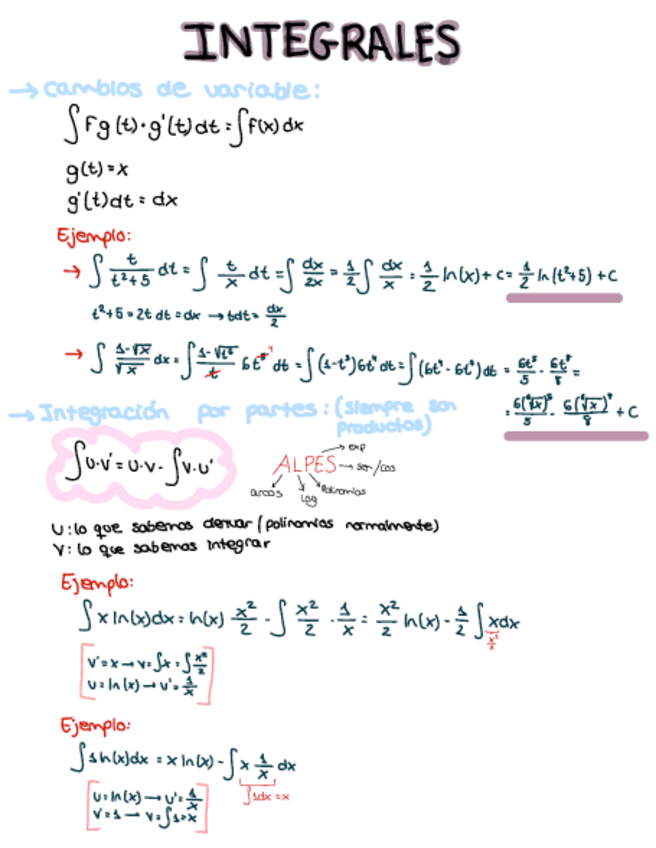 INTEGRALES
→ Cambios de variable:
∫ Fg(t)·g'(t)dt = ∫ f(x)dx
g(t) = x
g'(t)dt = dx
Ejemplo:
→ ∫ t/(t²+5) dt = ∫ t/x dt = ∫ dx/2x = 1/2 ∫ dx/x = 1/2 ln(x) + c = 1/2 ln(t²+5) + C
t²+5 = 2t dt = dx → tdt = dx/2
→ ∫ (1-√x)/√x dx = ∫ (1-√t⁶)/t 6t⁵ dt = ∫ (1-t³)6t⁴ dt = ∫ (6t⁴ - 6t⁷) dt = 6t⁵/5 - 6t⁸/8 =
→ Integración por partes: (siempre son productos)
∫ U·V' = U·V - ∫ V·U'
ALPES → exp
→ sen/cos
arcos
log
Polinomios
U: lo que sabemos derivar (polinomios normalmente)
V: lo que sabemos integrar
Ejemplo:
∫ x ln(x)dx = ln(x) x²/2 - ∫ x²/2 · 1/x = x²/2 ln(x) - 1/2 ∫ xdx
x²/2
V' = x → v = ∫x = ∫ x²/2
U = ln(x) → U' = 1/x
Ejemplo:
∫ 1 ln(x)dx = x ln(x) - ∫ x 1/x dx
∫1dx = x
U = ln(x) → U' = 1/x
V' = 1 → V = ∫1 = x